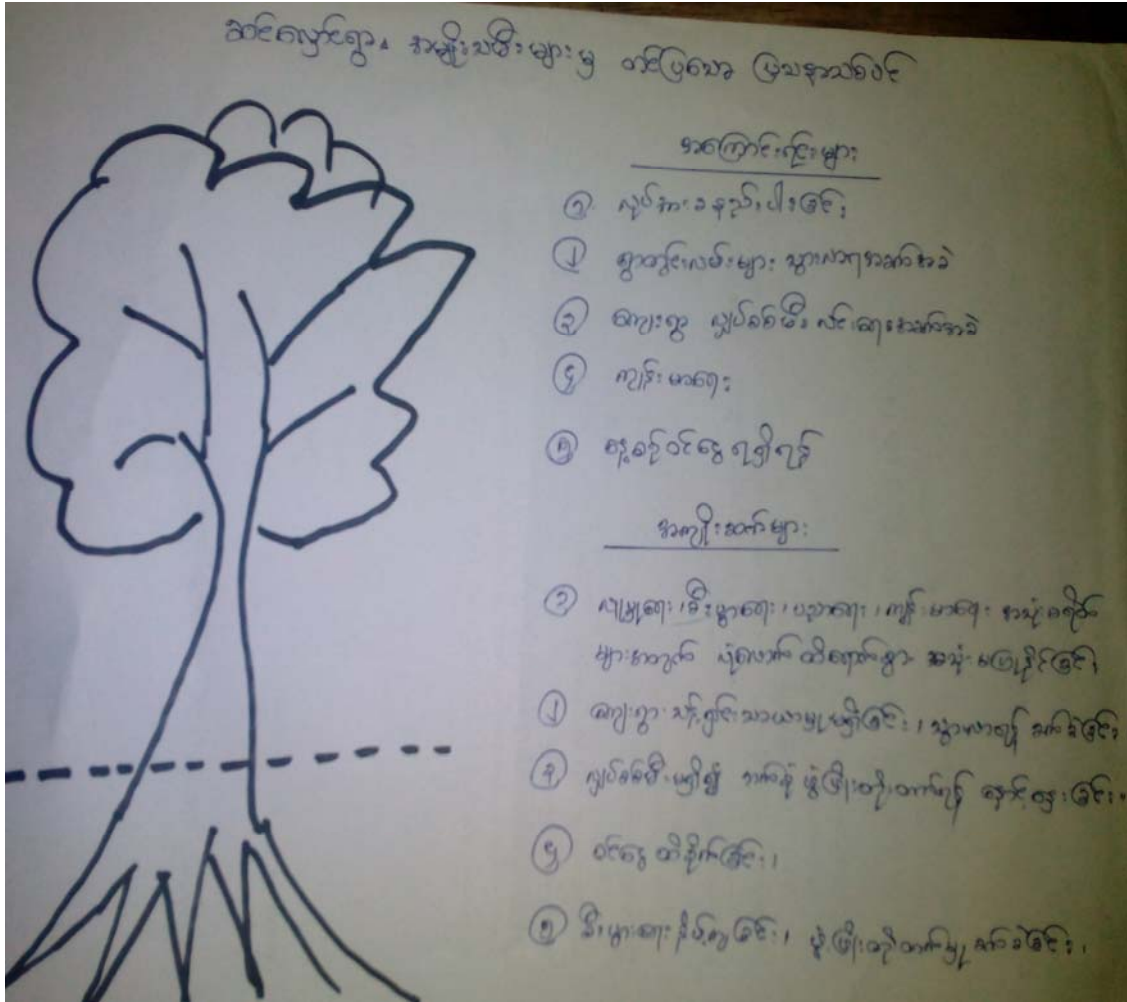 ဆင်လှောင်ရွာ၊ အမျိုးသမီးများမှ တင်ပြသော ပြဿနာသစ်ပင်
အကြောင်းရင်းများ
၁ လုပ်အားခနည်းပါးခြင်း
၂ ရွာတွင်းလမ်းများ သွားလာရအခက်အခဲ
၃ ကျေးရွာ လျှပ်စစ်မီး လင်းရေးအခက်အခဲ
၄ ကျန်းမာရေး
၅ နေ့စဉ်ဝင်ငွေ ရရှိရန်
အကျိုးဆက်များ
၁ လူမှုရေး၊ စီးပွားရေး၊ ပညာရေး၊ ကျန်းမာရေး အသုံးစရိတ်
များအတွက် လုံလောက် ထိရောက်စွာ အသုံးမပြုနိုင်ခြင်း၊
၂ ကျေးရွာ သန့်ရှင်းသာယာမှုမရှိခြင်း၊ သွားလာရန် ခက်ခဲခြင်း
၃ လျှပ်စစ်မီးမရှိ၍ ဖွံ့ဖြိုးတိုးတက်ရန် နှောင့်နှေးခြင်း၊
၄ ဝင်ငွေ ထိခိုက်ခြင်း၊
၅ စီးပွားရေး နိမ့်ကျခြင်း၊ ဖွံ့ဖြိုးတိုးတက်မှု ခက်ခဲခြင်း၊